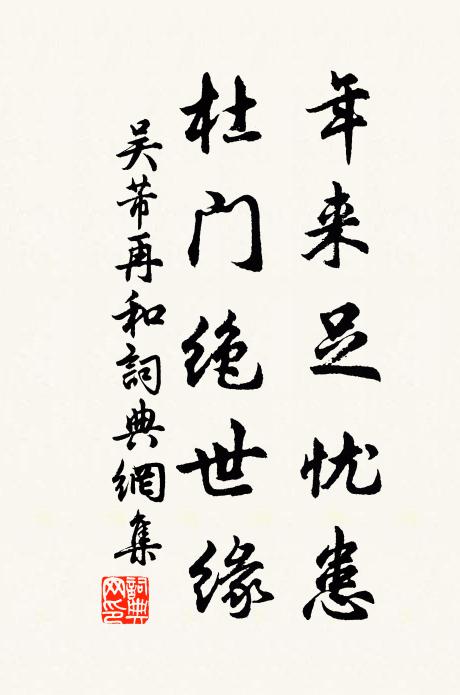 年来足忧患
杜门绝世缘
吴芾再和詞典網集
詞典网印